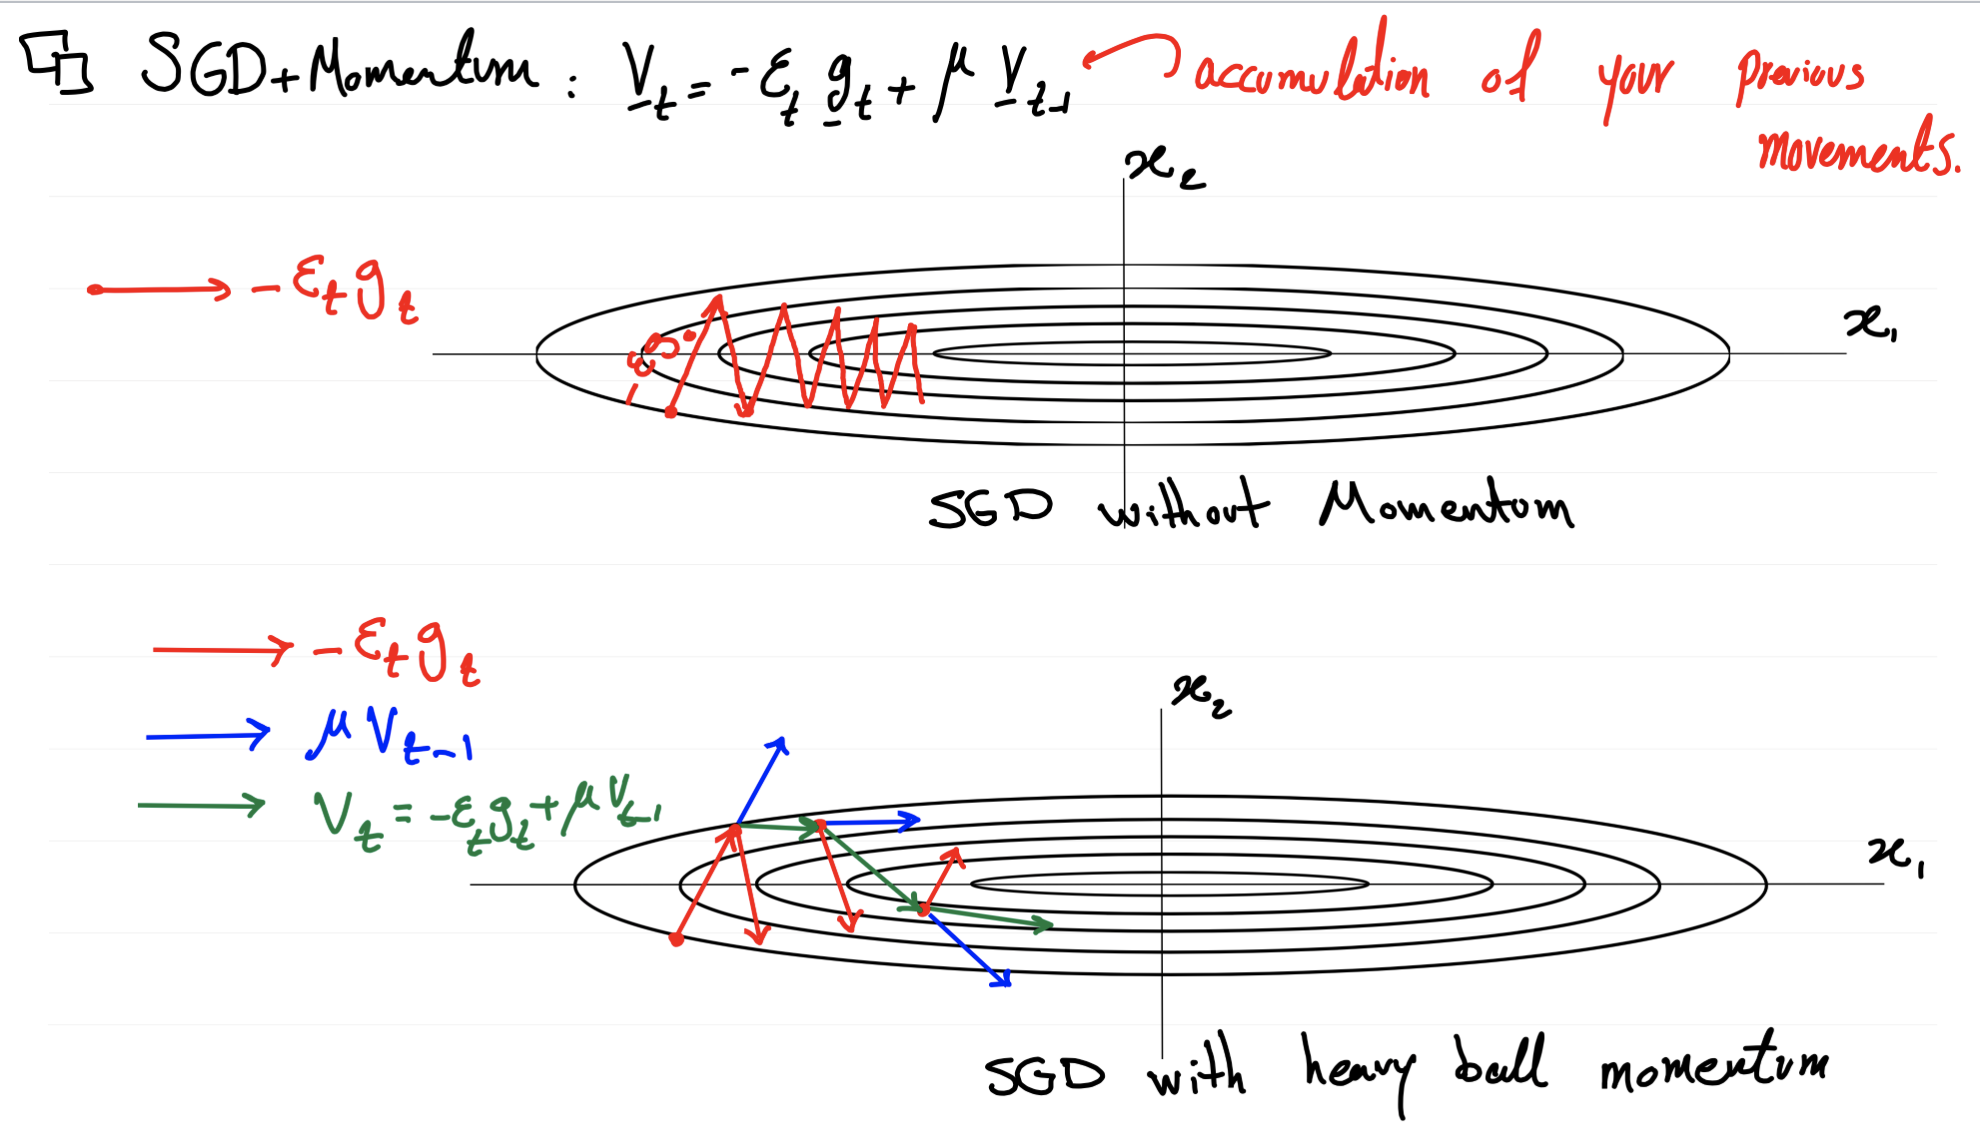 SGD+Momentum : V_t = -ε_t g_t + μ V_{t-1} accumulation of your previous
movements.
x_2
-ε_t g_t
x_1
-ε_0 g_0
SGD without Momentum
-ε_t g_t
x_2
μ V_{t-1}
V_t = -ε_t g_t + μ V_{t-1}
x_1
SGD with heavy ball momentum